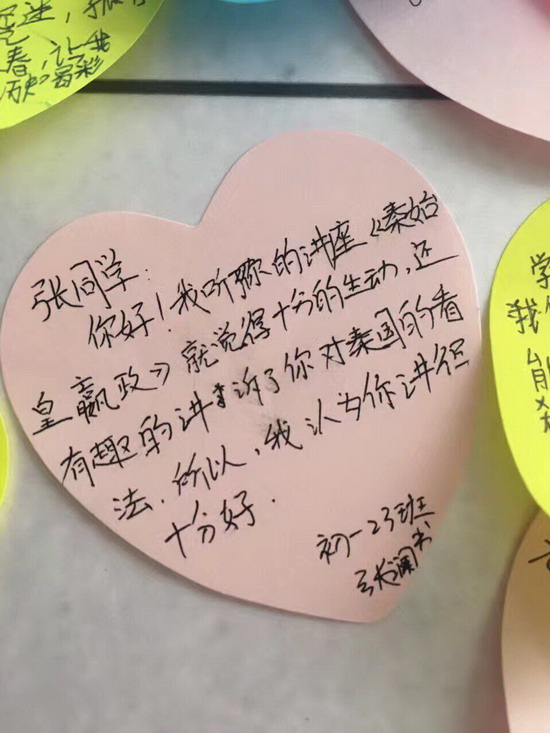 春，让我
张同学：
你好！我听了你的讲座《秦始
皇嬴政》就觉得十分的生动，还
有趣的讲诉了你对秦国的看
法．所以，我认为你讲得
十分好．
初一23班
张澜书
学
我们
能